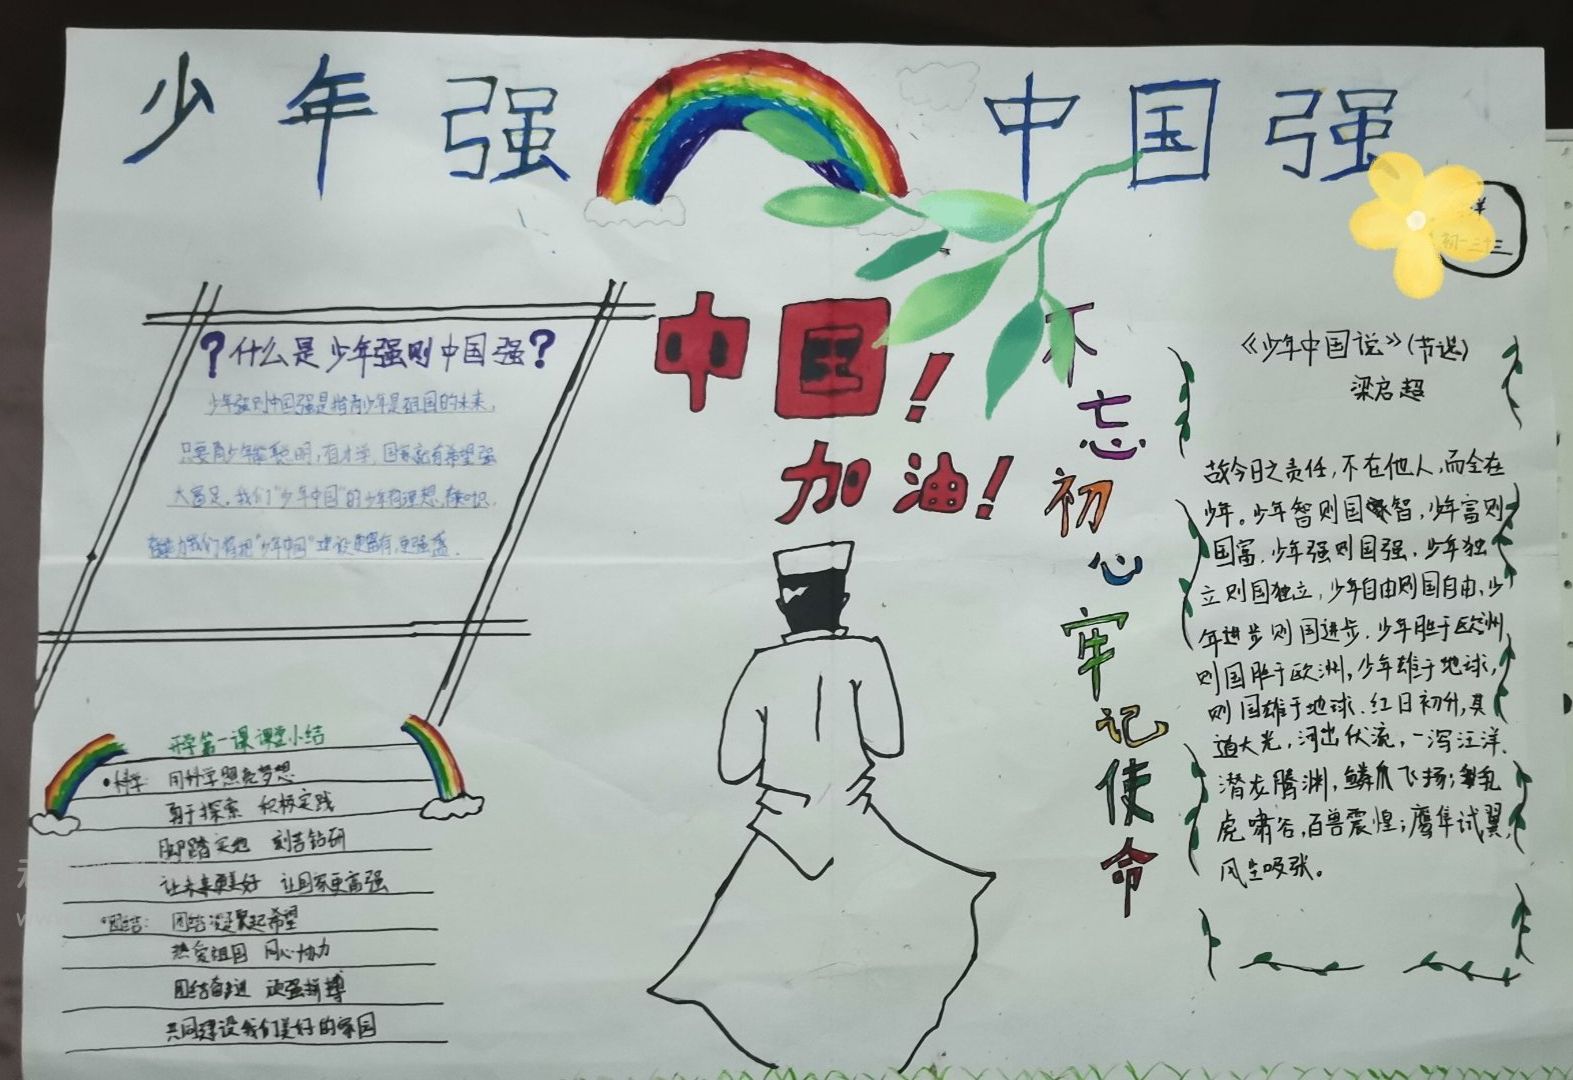 少年强 中国强
？什么是少年强则中国强？
少年强则中国强是指青少年是祖国的未来，
只要青少年能聪明，有才学，国家就有希望强
大富足。我们"少年中国"的少年有理想，有知识，
有能力我们将把"少年中国"建设更富有，更强盛．
开学第一课课堂小结
•科学：用科学照亮梦想
勇于探索 积极实践
脚踏实地 刻苦钻研
让未来更美好 让国家更富强
•团结：团结凝聚起希望
热爱祖国 同心协力
团结奋进 顽强拼搏
共同建设我们美好的家园
中国！
加油！
不忘初心牢记使命
洋
初一三十三
《少年中国说》(节选)
梁启超
故今日之责任，不在他人，而全在
少年。少年智则国智，少年富则
国富，少年强则国强，少年独
立则国独立，少年自由则国自由，少
年进步则国进步，少年胜于欧洲
则国胜于欧洲，少年雄于地球，
则国雄于地球．红日初升，其
道大光，河出伏流，一泻汪洋．
潜龙腾渊，鳞爪飞扬；乳
虎啸谷，百兽震惶；鹰隼试翼，
风尘吸张。